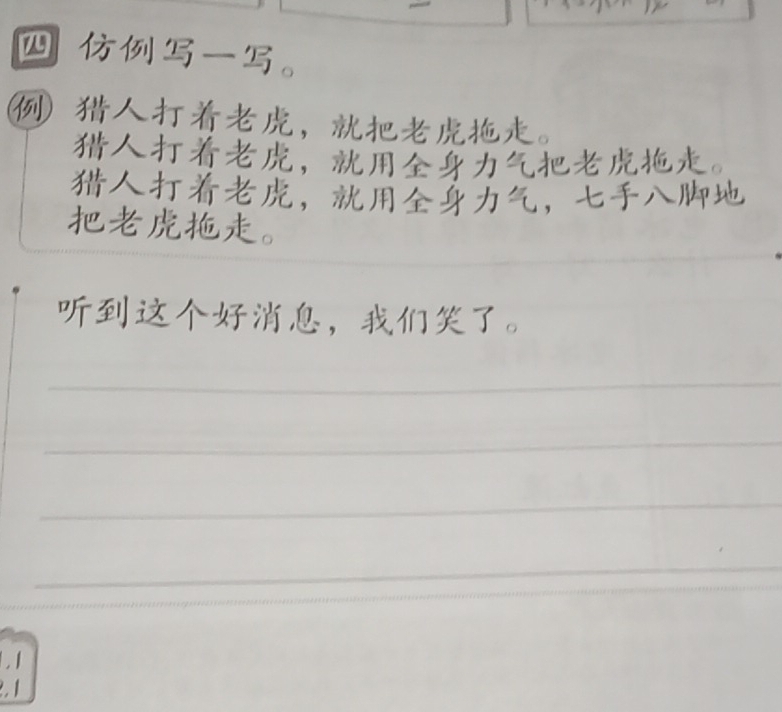 四 仿例写一写。
例 猎人打着老虎，就把老虎拖走。
猎人打着老虎，就用全身力气把老虎拖走。
猎人打着老虎，就用全身力气，七手八脚地
把老虎拖走。
听到这个好消息，我们笑了。